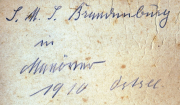 S. M. S. Brandenburg
in
Manöver
1910 Ostsee